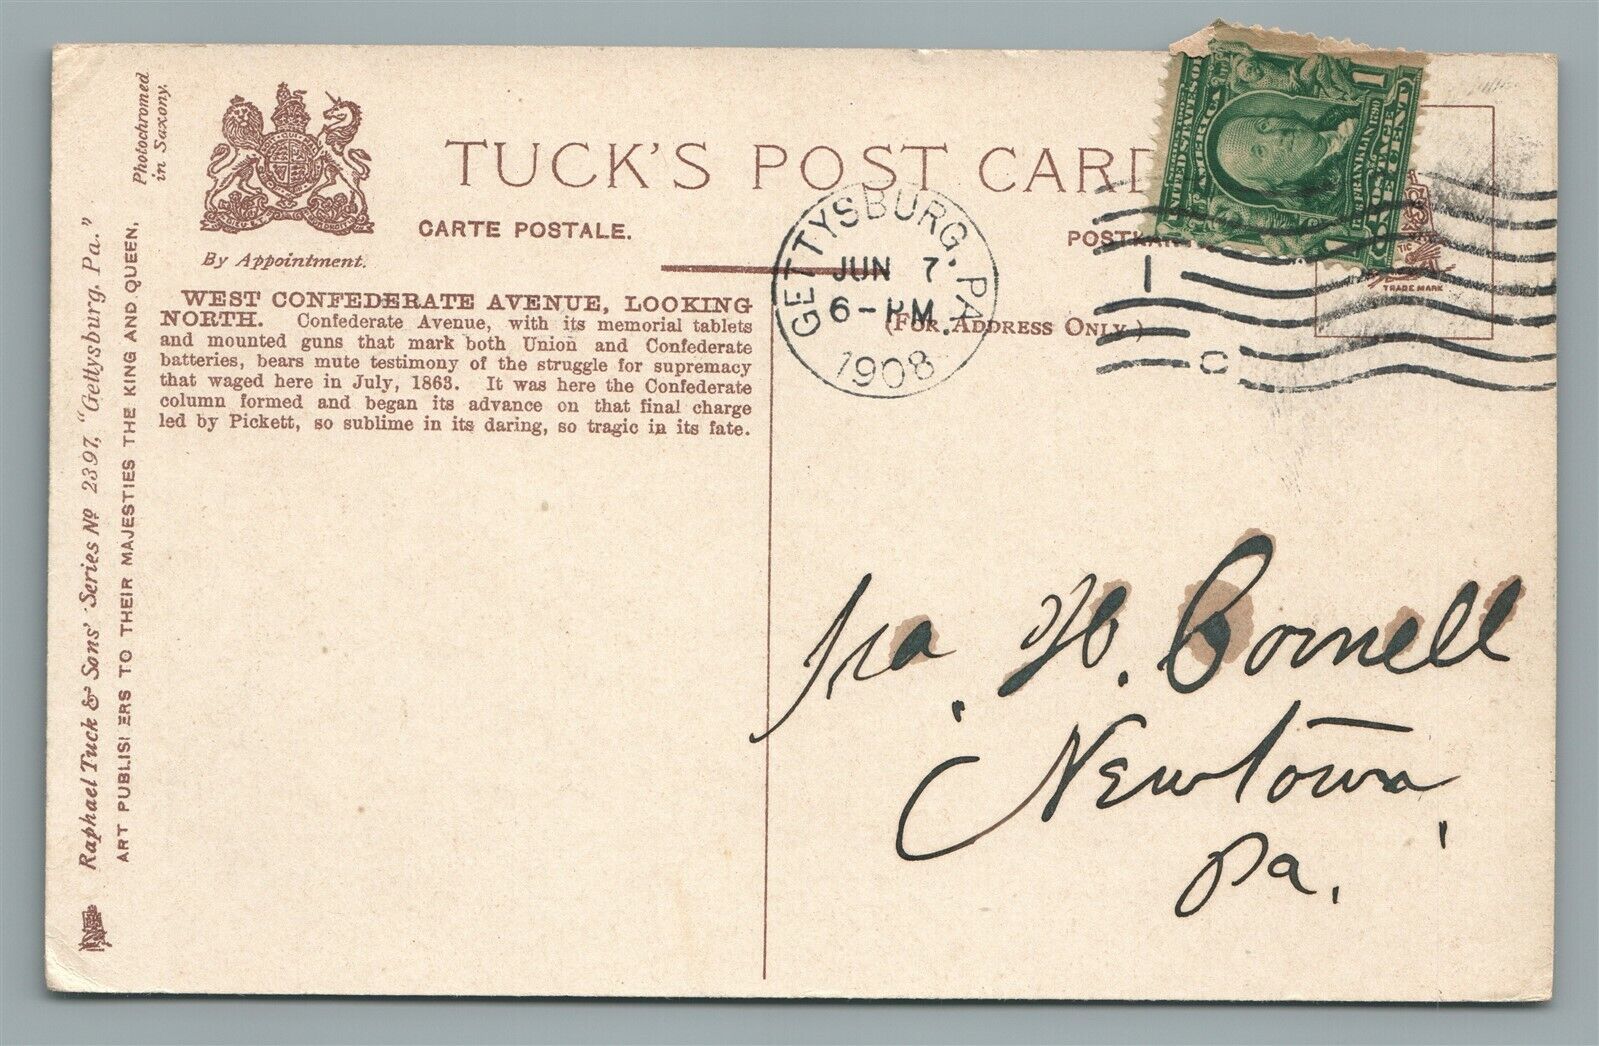 Photochromed
in Saxony.
By Appointment.
TUCK'S POST CARD
CARTE POSTALE.
POSTKAR
(FOR ADDRESS ONLY.)
TRADE MARK
UNITED STATES OF
AMERICA
FRANKLIN 1790
POSTAGE
ONE CENT
1
1
GETTYSBURG, PA.
JUN 7
6-PM
1908
1
C
WEST CONFEDERATE AVENUE, LOOKING
NORTH. Confederate Avenue, with its memorial tablets
and mounted guns that mark both Union and Confederate
batteries, bears mute testimony of the struggle for supremacy
that waged here in July, 1863. It was here the Confederate
column formed and began its advance on that final charge
led by Pickett, so sublime in its daring, so tragic in its fate.
Raphael Tuck & Sons' Series No 2397, "Gettysburg. Pa."
ART PUBLISHERS TO THEIR MAJESTIES THE KING AND QUEEN,
Ira H. Cornell
Newtown
Pa.